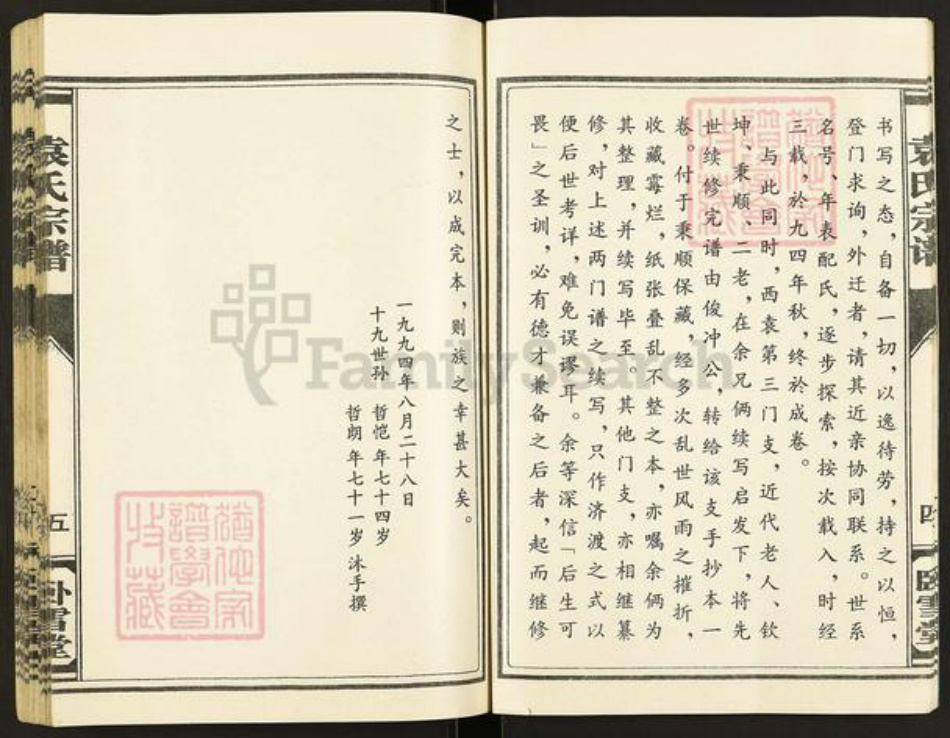 书写之态，自备一切，以逸待劳，持之以恒，
登门求询，外迁者，请其近亲协同联系。世系
名号、年表配氏，逐步探索，按次载入，时经
三载，於九四年秋，终於成卷。
与此同时，西袁第三门支，近代老人、钦
坤、秉顺、二老，在余兄俩续写启发下，将先
世续修完谱由俊冲公，转给该支手抄本一
卷。付于秉顺保藏，经多次乱世风雨之摧折，
收藏霉烂，纸张叠乱不整之本，亦嘱余俩为
其整理，并续写毕至。其他门支，亦相继纂
修，对上述两门谱之续写，只作济渡之式以
便后世考详，难免误谬耳。余等深信「后生可
畏」之圣训，必有德才兼备之后者，起而继修
之士，以成完本，则族之幸甚大矣。
一九九四年八月二十八日
十九世孙 哲恺年七十四岁
哲朗年七十一岁 沐手撰
袁氏宗谱
四
卧雪堂
袁氏宗谱
五
卧雪堂
FamilySearch